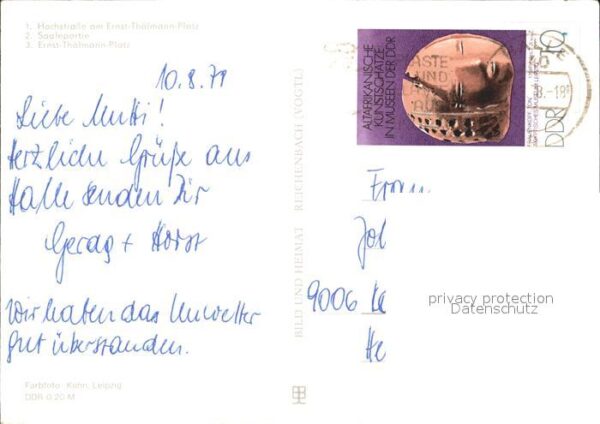 1. Hochstraße am Ernst-Thälmann-Platz
2. Saalepartie
3. Ernst-Thälmann-Platz
10.8.79
Liebe Mutti!
Herzliche Grüße aus
Halle senden Dir
+ Horst
Wir haben das Unwetter
gut überstanden.
Farbfoto: Kühn, Leipzig
DDR 0,20 M
BILD UND HEIMAT REICHENBACH (VOGTL)
ALTAFRIKANISCHE
KUNSTSCHÄTZE
IN MUSEEN DER DDR
10
DDR
8.-18
9006
privacy protection
Datenschutz